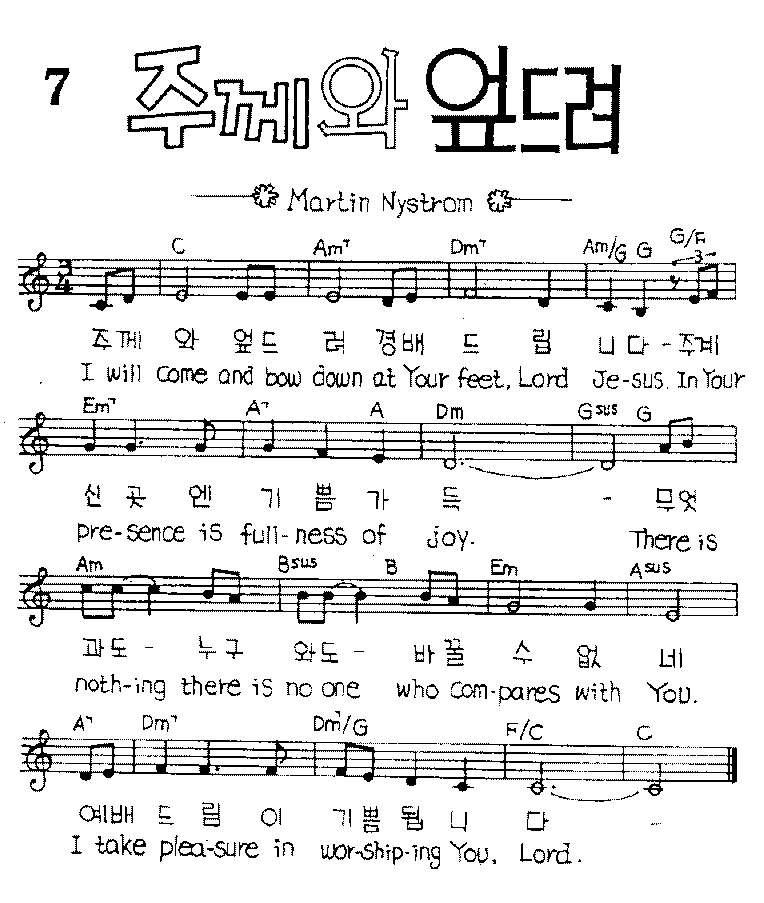 7 주께와 엎드려
Martin Nystrom
C Am7 Dm7 Am/G G G/F
3
4
3
주께 와 엎드 려 경배 드 립 니 다 - 주계
I will come and bow down at Your feet, Lord Je-sus. In Your
Em7 A7 A Dm Gsus G
신 곳 엔 기 쁨 가 득 - 무엇
pre-sence is full-ness of joy. There is
Am Bsus B Em Asus
과도 - 누구 와도 - 바꿀 수 없 네
noth-ing there is no one who com-pares with You.
A7 Dm7 Dm7/G F/C C
예배 드 림 이 기쁨 됩 니 다 -
I take plea-sure in wor-ship-ing You, Lord.